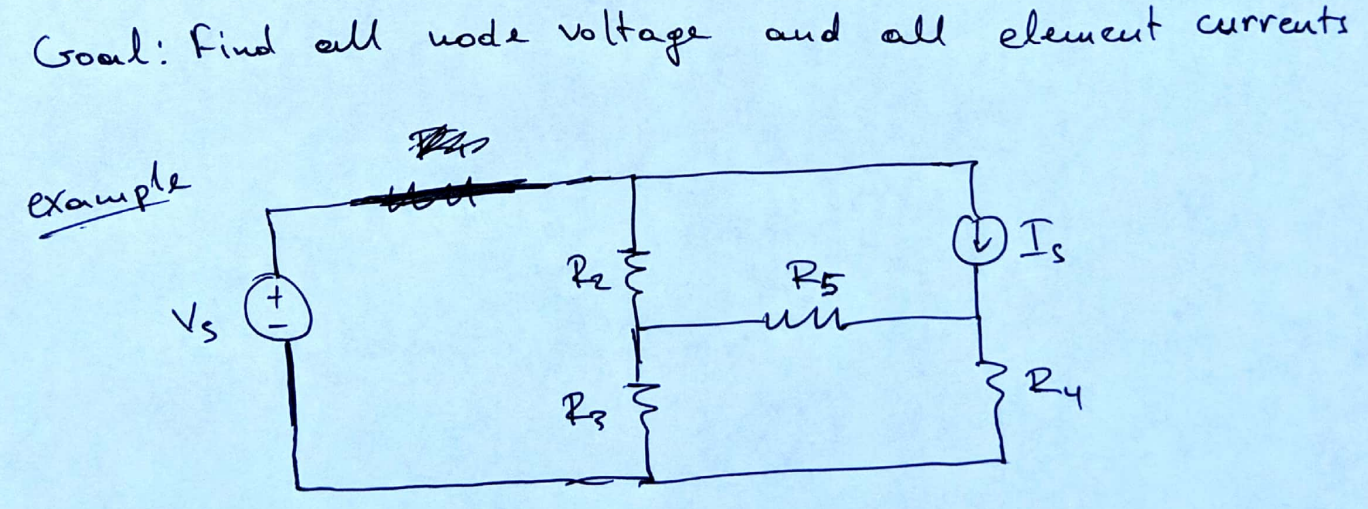 Goal: Find all node voltage and all element currents
example
Vs
+
-
R2
R3
R5
Is
R4